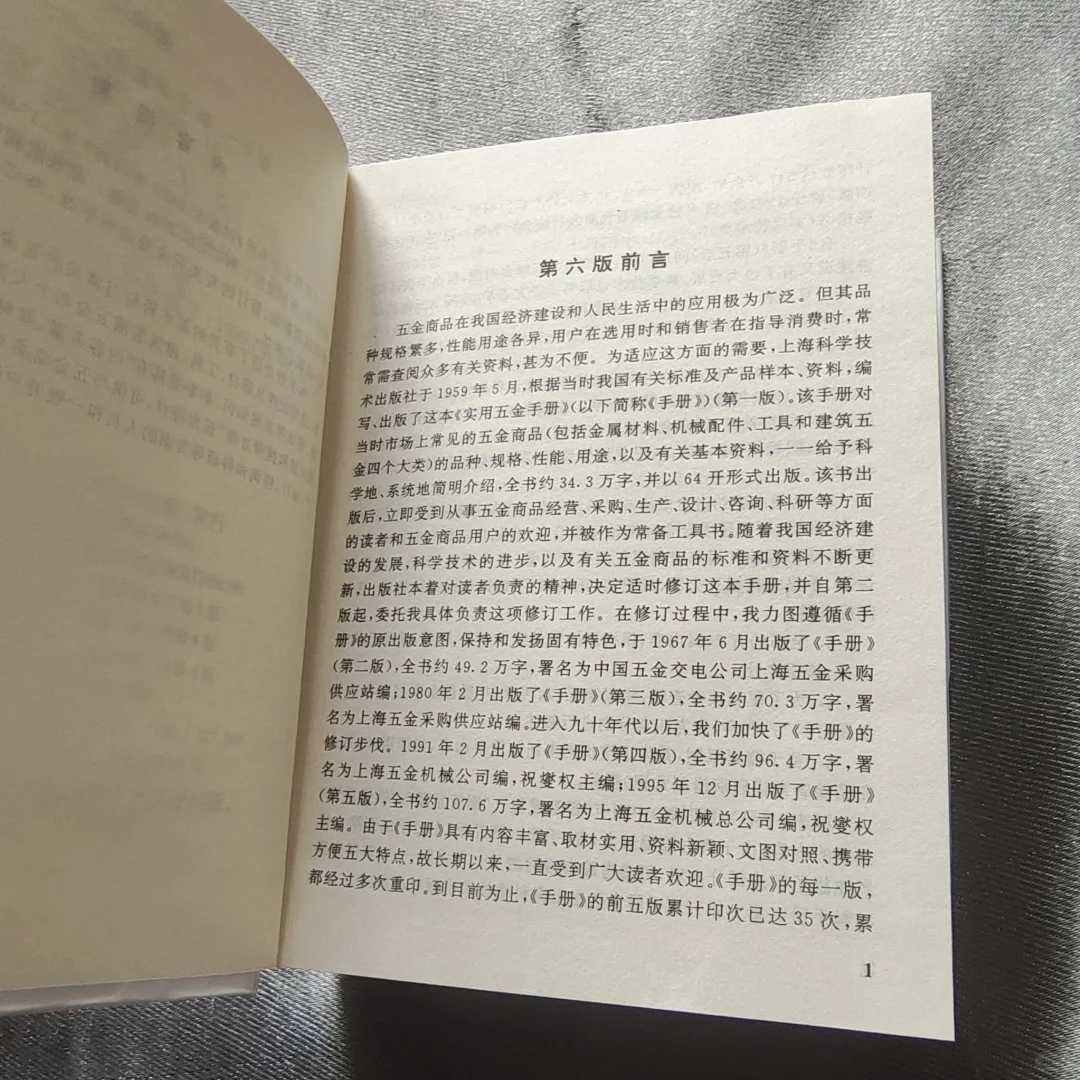 第六版前言
五金商品在我国经济建设和人民生活中的应用极为广泛。但其品
种规格繁多，性能用途各异，用户在选用时和销售者在指导消费时，常
常需查阅众多有关资料，甚为不便。为适应这方面的需要，上海科学技
术出版社于1959年5月，根据当时我国有关标准及产品样本、资料，编
写、出版了这本《实用五金手册》(以下简称《手册》)(第一版)。该手册对
当时市场上常见的五金商品(包括金属材料、机械配件、工具和建筑五
金四个大类)的品种、规格、性能、用途，以及有关基本资料，一一给予科
学地、系统地简明介绍，全书约34.3万字，并以64开形式出版。该书出
版后，立即受到从事五金商品经营、采购、生产、设计、咨询、科研等方面
的读者和五金商品用户的欢迎，并被作为常备工具书。随着我国经济建
设的发展，科学技术的进步，以及有关五金商品的标准和资料不断更
新，出版社本着对读者负责的精神，决定适时修订这本手册，并自第二
版起，委托我具体负责这项修订工作。在修订过程中，我力图遵循《手
册》的原出版意图，保持和发扬固有特色，于1967年6月出版了《手册》
(第二版)，全书约49.2万字，署名为中国五金交电公司上海五金采购
供应站编；1980年2月出版了《手册》(第三版)，全书约70.3万字，署
名为上海五金采购供应站编。进入九十年代以后，我们加快了《手册》的
修订步伐。1991年2月出版了《手册》(第四版)，全书约96.4万字，署
名为上海五金机械公司编，祝燮权主编；1995年12月出版了《手册》
(第五版)，全书约107.6万字，署名为上海五金机械总公司编，祝燮权
主编。由于《手册》具有内容丰富、取材实用、资料新颖、文图对照、携带
方便五大特点，故长期以来，一直受到广大读者欢迎。《手册》的每一版，
都经过多次重印。到目前为止，《手册》的前五版累计印次已达35次，累
1